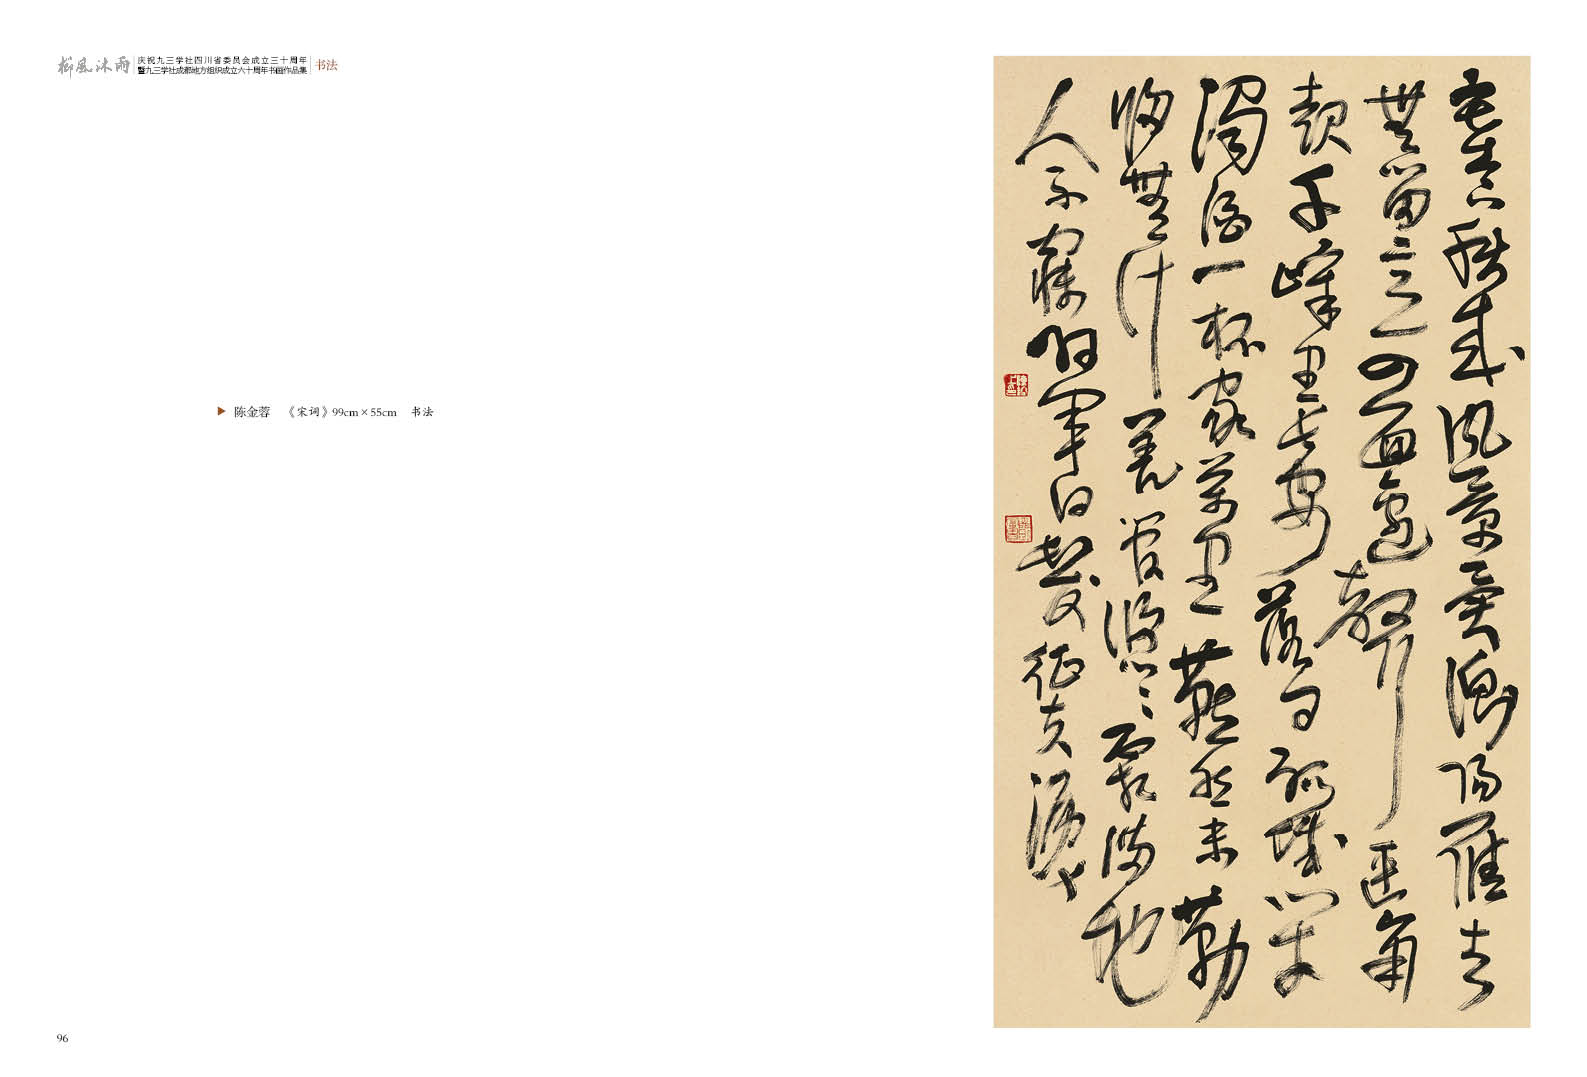 栉风沐雨
庆祝九三学社四川省委员会成立三十周年
暨九三学社成都地方组织成立六十周年书画作品集
书法
陈金蓉 《宋词》99cm×55cm 书法
塞下秋来风景异衡阳雁去
無留意四面邊聲連角
起千嶂里長煙落日孤城閉
濁酒一杯家萬里燕然未勒
歸無計羌管悠悠霜滿地
人不寐將軍白髮征夫淚
96